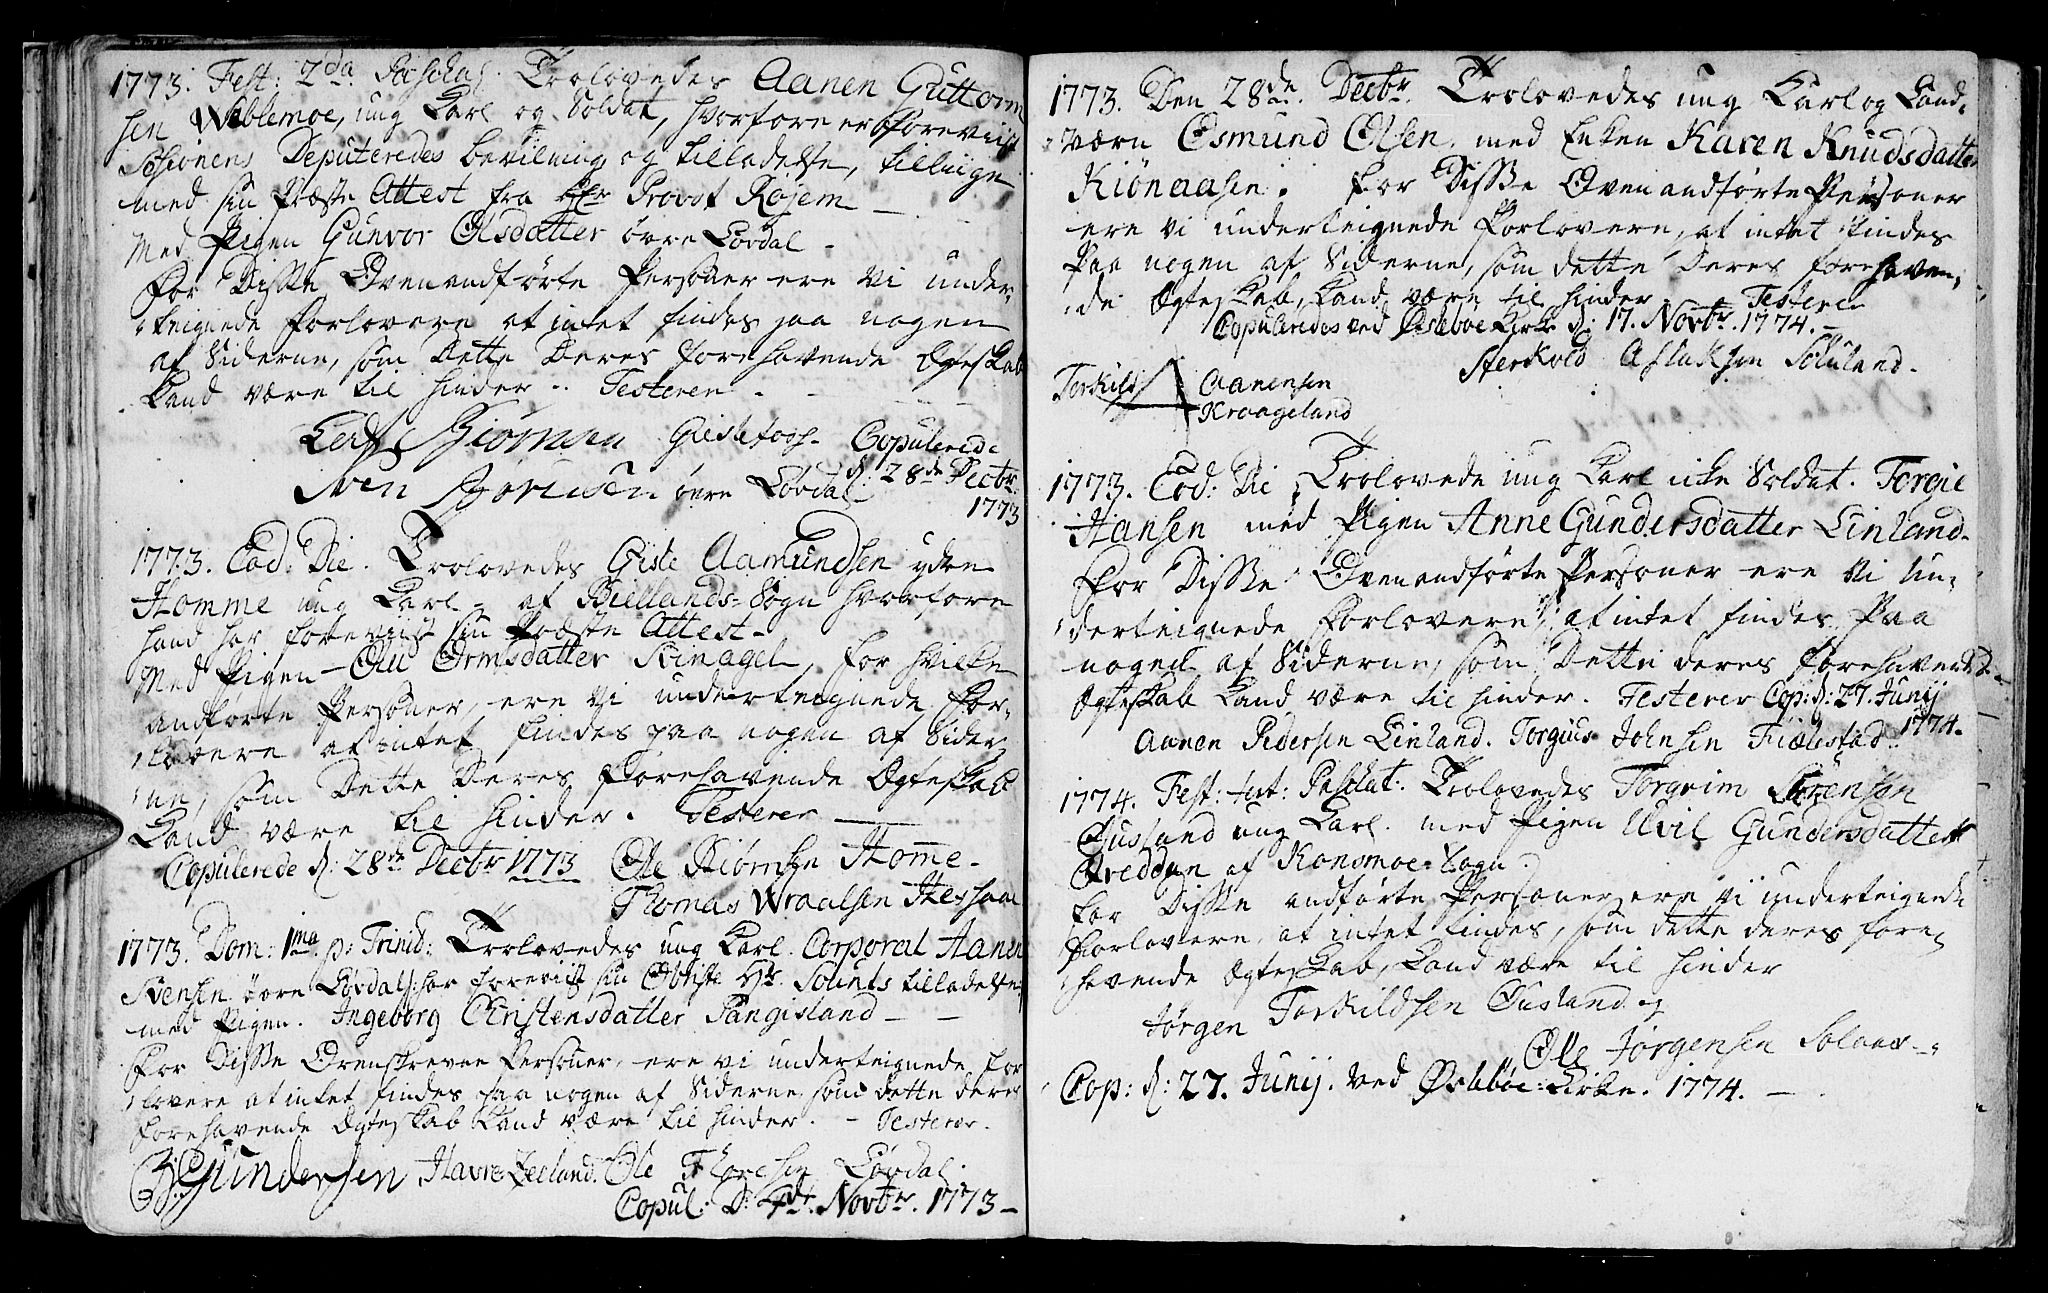 1773. Fest: 2da Paschas. Trolovedes Aanen Guttorm
sen Weblemoe, ung Karl og Soldat, hvorfore er foreviist
Sessionens Deputeredes bevilning og tilladelse, tilliige
med sin Præste Attest fra Hr Provst Røjem
Med Pigen Gunvor Olsdatter øvre Løvdal
For Disse Ovenandførte Personer ere Vi under-
teignede Forlovere at intet findes paa nogen
af Siderne, som Dette Deres forehavende Ægteskab
Kand være til hinder. Testerer
Biørnsen Gislefoss. Copulerede
Sven Jørensen øvre Løvdal d: 28de Decbr.
1773
1773. Eod: Die. Trolovedes Giste Aamundsen ydre
Homme ung Karl af Biellands-Sogn hvorfore
hand har foreviist sin Præste Attest
Med Pigen Oli Ormsdatter Kinagel, for hvilke
andførte Personer, ere Vi underteignede For-
lovere at intet findes paa nogen af Sider-
ne, som Dette Deres Forehavende Ægteskab
Kand være til hinder. Testerer
Copulerede d: 28de Decbr 1773 Ole Biørnsen Homme.
Thomas Wraalsen
1773. Dom: 1ma p: Trinid: Trolovedes ung Karl Corporal Aanen
Svensen øvre Løvdal, har foreviist sin Obriste Hr. tilladelse
med Pigen. Ingeborg Christensdatter Pangisland
For Disse Ovenskrevne Personer, ere vi underteignede For
lovere at intet findes paa nogen af Siderne som dette deres
forehavende Ægteskab kand være til hinder. Testerer.
Gundersen Havre Zeeland. Ole Thoresen Løvdal.
Copul. D: 4de Novbr. 1773
1773. Den 28de Decbr. Trolovedes ung Karl og Land-
værn Osmund Olsen med Enken Karen Knudsdatter
Kiønaasen. For Disse Ovenandførte Personer
ere vi underteignede Forlovere, at intet findes
Paa nogen af Siderne, som dette Deres forehaven-
de Ægteskab, Kand være til hinder. Testerer
Copuleredes ved Øslebøe Kirke d: 17. Novbr. 1774.
Sterkold Aslaksen Soluland.
Torkild Aanensen
Kraageland
1773. Eod: Die Trolovede ung Karl icke Soldat. Torgie
Hansen med Pigen Anne Gundersdatter Linland.
For Disse Ovenandførte Personer ere Vi Un-
derteignede Forlovere, at intet findes Paa
nogen af Siderne, som Dette deres forehavende
Ægteskab Kand være til hinder. Testerer Cop: d: 27. Junij
1774.
Aanen Pedersen Linland. Torgius Johnsen Fiælestad
1774. Fest: tert: Paschat: Trolovedes Torgrim Sørensen
Øusland ung Karl. med Pigen Uvil Gundersdatter
Øreddan af Konsmoe Sogn
For Disse andførte Personer ere vi underteignede
Forlovere at intet findes, som dette deres fore-
havende Ægteskab, Kand være til hinder
Jørgen Torkildsen Øusland og
Ole Jørgensen Solaas
Cop: d: 27. Junij. ved Øslebøe Kirke. 1774.